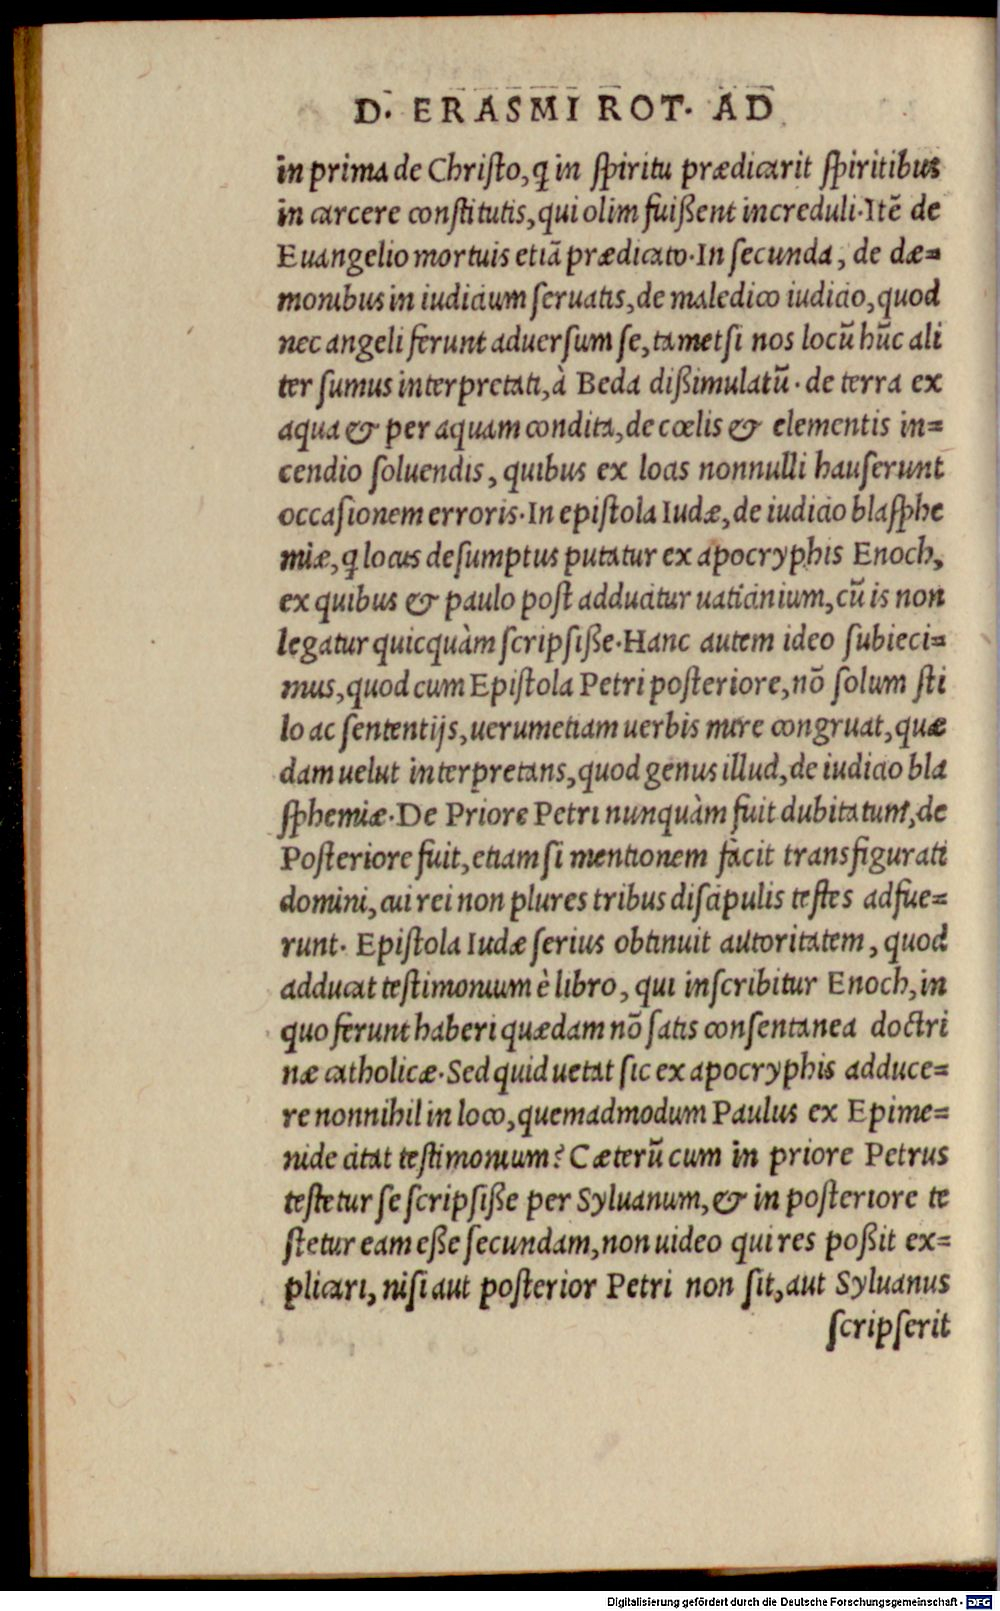 D. ERASMI ROT. AD
in prima de Christo, q̃ in spiritu prædicarit spiritibus
in carcere constitutis, qui olim fuißent increduli. Itē de
Euangelio mortuis etiā prædicato. In secunda, de dæ=
monibus in iudicium seruatis, de maledico iudicio, quod
nec angeli ferunt aduersum se, tametsi nos locū hūc ali
ter sumus interpretati, à Beda dißimulatū. de terra ex
aqua & per aquam condita, de cœlis & elementis in=
cendio soluendis, quibus ex locis nonnulli hauserunt
occasionem erroris. In epistola Iudæ, de iudicio blasphe
miæ, q̃ locus desumptus putatur ex apocryphis Enoch,
ex quibus & paulo post adducitur uaticinium, cū is non
legatur quicquàm scripsiße. Hanc autem ideo subieci=
mus, quod cum Epistola Petri posteriore, nō solum sti
lo ac sententijs, uerumetiam uerbis mire congruat, quæ
dam uelut interpretans, quod genus illud, de iudicio bla
sphemiæ. De Priore Petri nunquàm fuit dubitatum, de
Posteriore fuit, etiam si mentionem facit transfigurati
domini, cui rei non plures tribus discipulis testes adfue=
runt. Epistola Iudæ serius obtinuit autoritatem, quod
adducat testimonium è libro, qui inscribitur Enoch, in
quo ferunt haberi quædam nō satis consentanea doctri
næ catholicæ. Sed quid uetat sic ex apocryphis adduce=
re nonnihil in loco, quemadmodum Paulus ex Epime=
nide citat testimonium? Cæterū cum in priore Petrus
testetur se scripsiße per Syluanum, & in posteriore te
stetur eam eße secundam, non uideo qui res poßit ex=
plicari, nisi aut posterior Petri non sit, aut Syluanus
scripserit
Digitalisierung gefördert durch die Deutsche Forschungsgemeinschaft - DFG